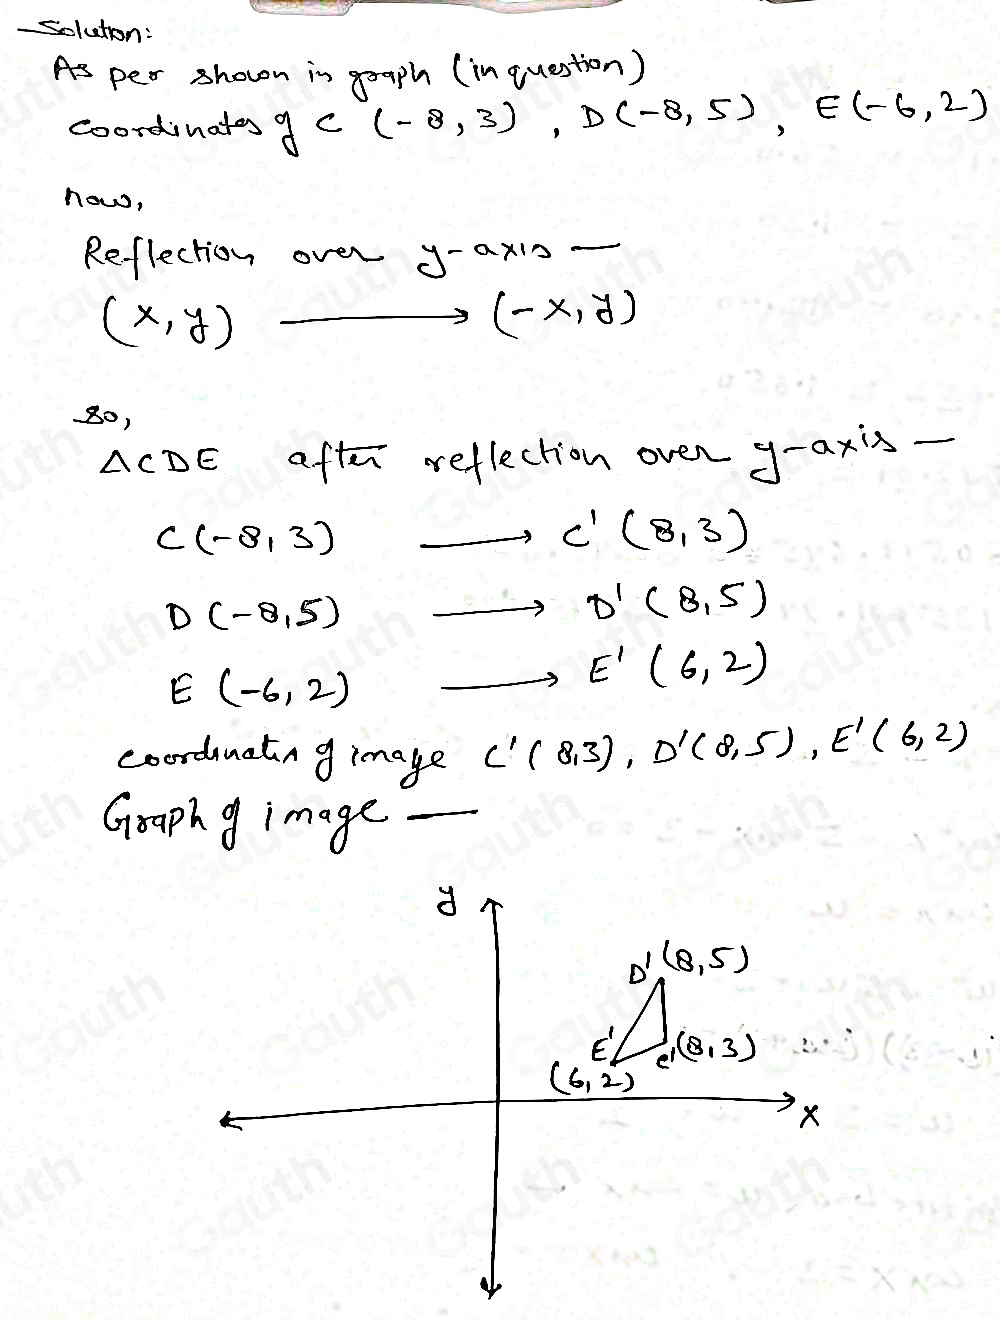 Solution:
As per shown in graph (in question)
coordinates of C (-8,3), D(-8,5), E(-6,2)
now,
Reflection over y-axis —
(x,y) → (-x,y)
so,
△CDE after reflection over y-axis —
C(-8,3) → C'(8,3)
D(-8,5) → D'(8,5)
E(-6,2) → E'(6,2)
coordinates of image C'(8,3), D'(8,5), E'(6,2)
Graph of image —
y
D'(8,5)
E' C'(8,3)
(6,2)
x